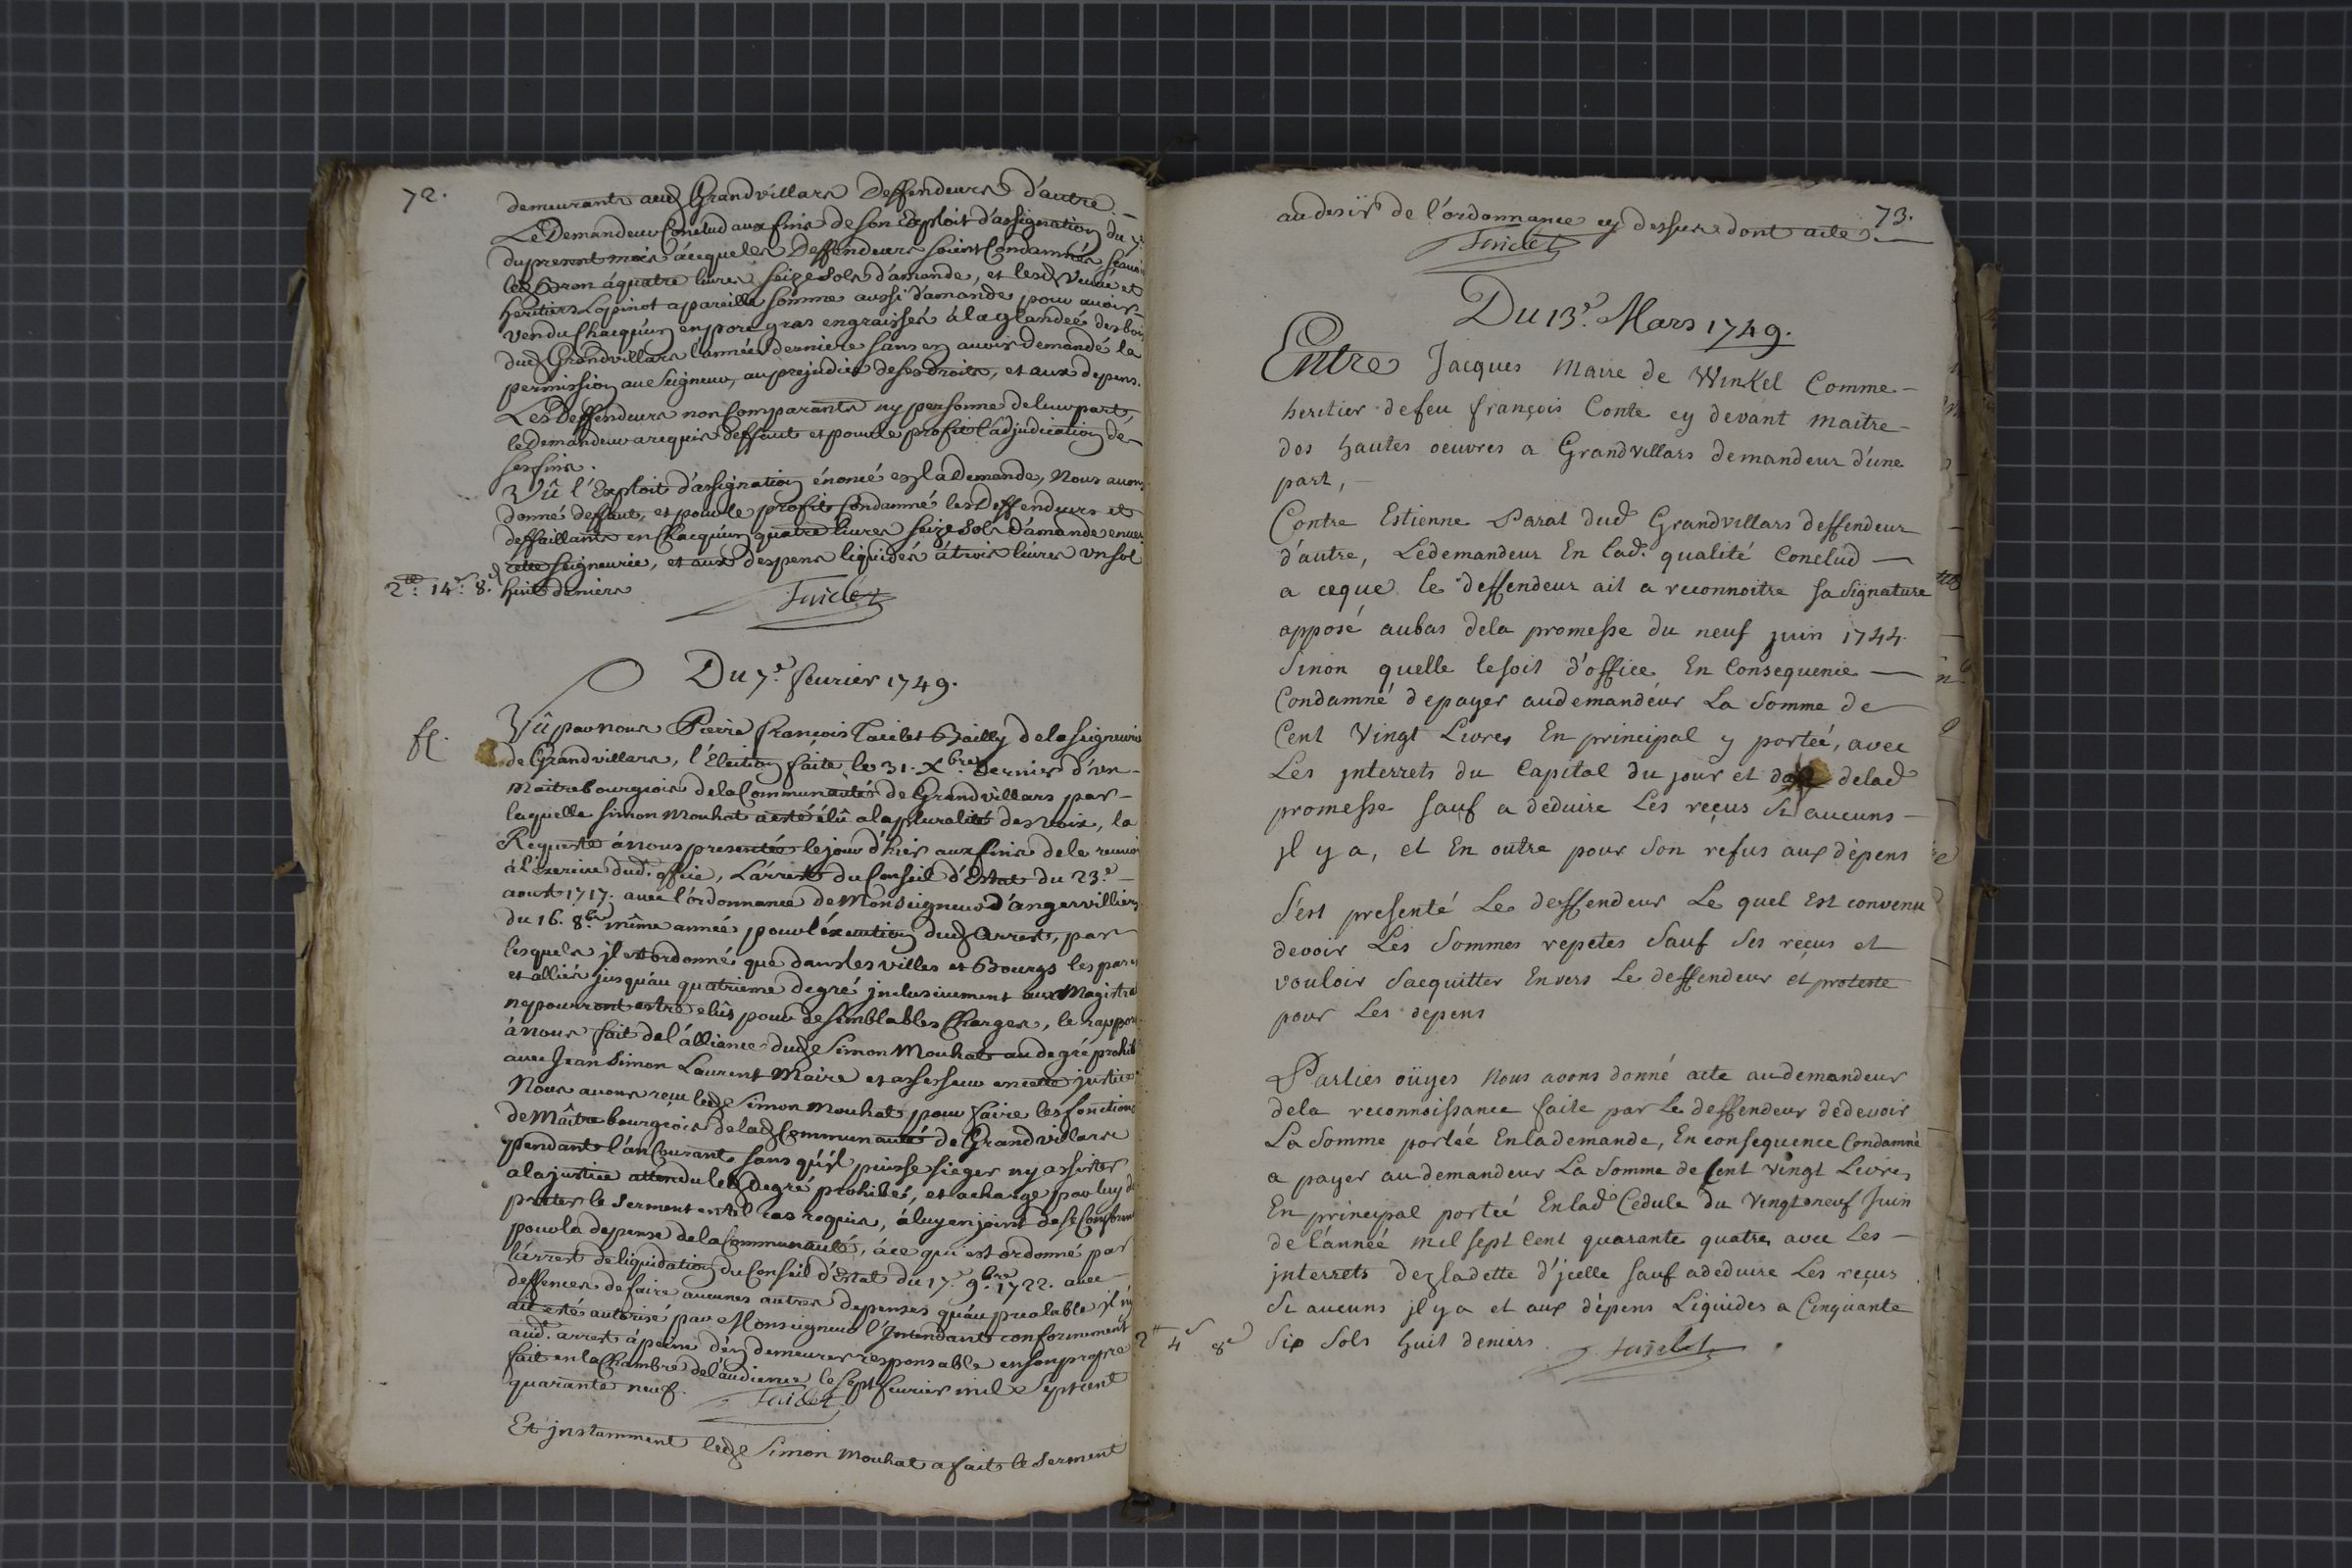 72.
demeurants aud Grandvillars Deffendeurs d'autre.
Le Demandeur Conclud aux fins de son Exploit d'assignation du 7e
du present mois à ceque les Deffendeurs soient Condamnés
led à quatre livres seize sols d'amande, et lesd Veuve et
heritiers Lopinot a pareille somme aussi d'amande pour avoir
vendu Chacqu'un en porc gras engraissés à la glandeé des bois
dud Grandvillars l'année derniere sans en avoir demandé la
permission au Seigneur, au prejudice de ses droits, et aux depens.
Les Deffendeurs non Comparants ny personne de leur part,
le Demandeur a requis deffaut et pour le profit l'adjudication de
ses fins.
Vû l'Exploit d'assignation énoncé en la demande, Nous avons
donné deffaut, et pour le profit Condamné les Deffendeurs et
deffaillants en Chacqu'un quatre livres seize sols D'amande envers
cette seigneurie, et aux despens liquidés à trois livres un sol
2tt. 14s. 8d. huit deniers
Du 7e. fevrier 1749.
Vû par nous Pierre françois Taiclet Bailly de la seigneurie
de Grandvillars, l'Election faite le 31. Xbre Dernier d'un
Maitrebourgeois de la Communauté de Grandvillars par
laquelle Simon Mouhat a esté élû a la pluralité des voix, la
Requeste à nous presentés le jour d'hier aux fins de le recevoir
à l'exercice dud. office, L'arrest du Conseil d'Estat du 23e.
aoust 1717. avec l'ordonnance de Monseigneur d'angervilliers
du 16. 8bre même année pour l'éxecution dud Arrest, par
lesquels jl est ordonné que dans les villes et Bourgs les
et alliés jusqu'au quatrieme degré jnclusivement aux Magistra
ny pourront estre elûs pour de semblables Charges, le rapport
à nous fait de l'alliance dud Simon Mouhat au degré prohib
avec Jean Simon Laurent Maire et assesseur en cette justice
Nous avons reçu led Simon Mouhat pour faire les fonctions
de Maître bourgeois de lad Communauté de Grandvillars
pendant l'an Courant sans qu'jl puisse sieger ny assister
a la justice attendu led Degré prohibé, et a charge par luy de
prêter le Serment en tel cas requis, à luy enjoint de se Conformer
pour la depense de la Communauté, à ce qui est ordonné par
l'arrest de liquidation du Conseil d'Estat du 17. 9bre 1722. avec
deffences de faire aucunes autres depenses qu'au prealable jl n'y
ait esté autorisé par Monseigneur l'Jntendant conformement
aud. arrest à peine d'en demeurer responsable en son propre
fait en la Chambre de l'audience le Sept fevrier mil Septcent
quarante neuf.
Et jnstamment led Simon Mouhat a fait le Serment
73.
au desir de l'ordonnance cy dessus dont acte.
Du 13e. Mars 1749.
Entre Jacques Maire de Winkel Comme
heritier de feu françois Conte cy devant maitre
des hautes oeuvres a Grandvillars demandeur d'une
part,
Contre Estienne Parat dud Grandvillars deffendeur
d'autre, Le demandeur En lad. qualité Conclud
a ceque le deffendeur ait a reconnoitre sa signature
apposé au bas dela promesse du neuf juin 1744.
Sinon quelle le soit d'office En Consequence
Condamné de payer au demandeur La Somme de
Cent Vingt Livres En principal y portéé, avec
Les jnterrets du Capital du jour et delad
promesse sauf a deduire Les reçus Si aucuns
jl y a, et En outre pour Son refus aux dépens
S'est presenté Le deffendeur Le quel Est convenu
devoir Les Sommes repetes Sauf Ses reçus et
vouloir Sacquitter Envers Le deffendeur et proteste
pour Les depens
Parties oüyes Nous avons donné acte au demandeur
dela reconnoissance faite par Le deffendeur de devoir
La Somme portéé En la demande, En consequence Condamné
a payer au demandeur La Somme de Cent vingt Livres
En principal portéé En lad Cedule du Vingt neuf Juin
de l'annéé mil sept Cent quarante quatre avec Les
jnterrets dez la datte d'jcelle sauf a deduire Les reçus
Si aucuns jl y a et aux dépens Liquides a Cinquante
2tt 4s 8d Six Sols huit deniers